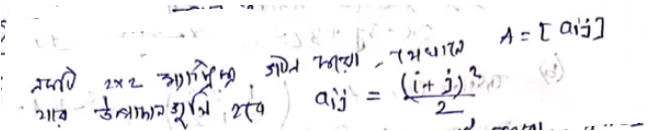 একটি 2x2 ম্যাট্রিক্স গঠন করো, যেখানে A = [aij]
যার উপাদানগুলি হবে aij = (i+j)²/2